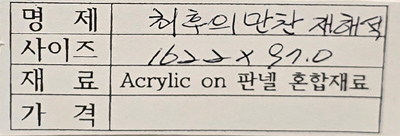 명 제 최후의 만찬 재해석
사이즈 162.2 x 97.0
재 료 Acrylic on 판넬 혼합재료
가 격